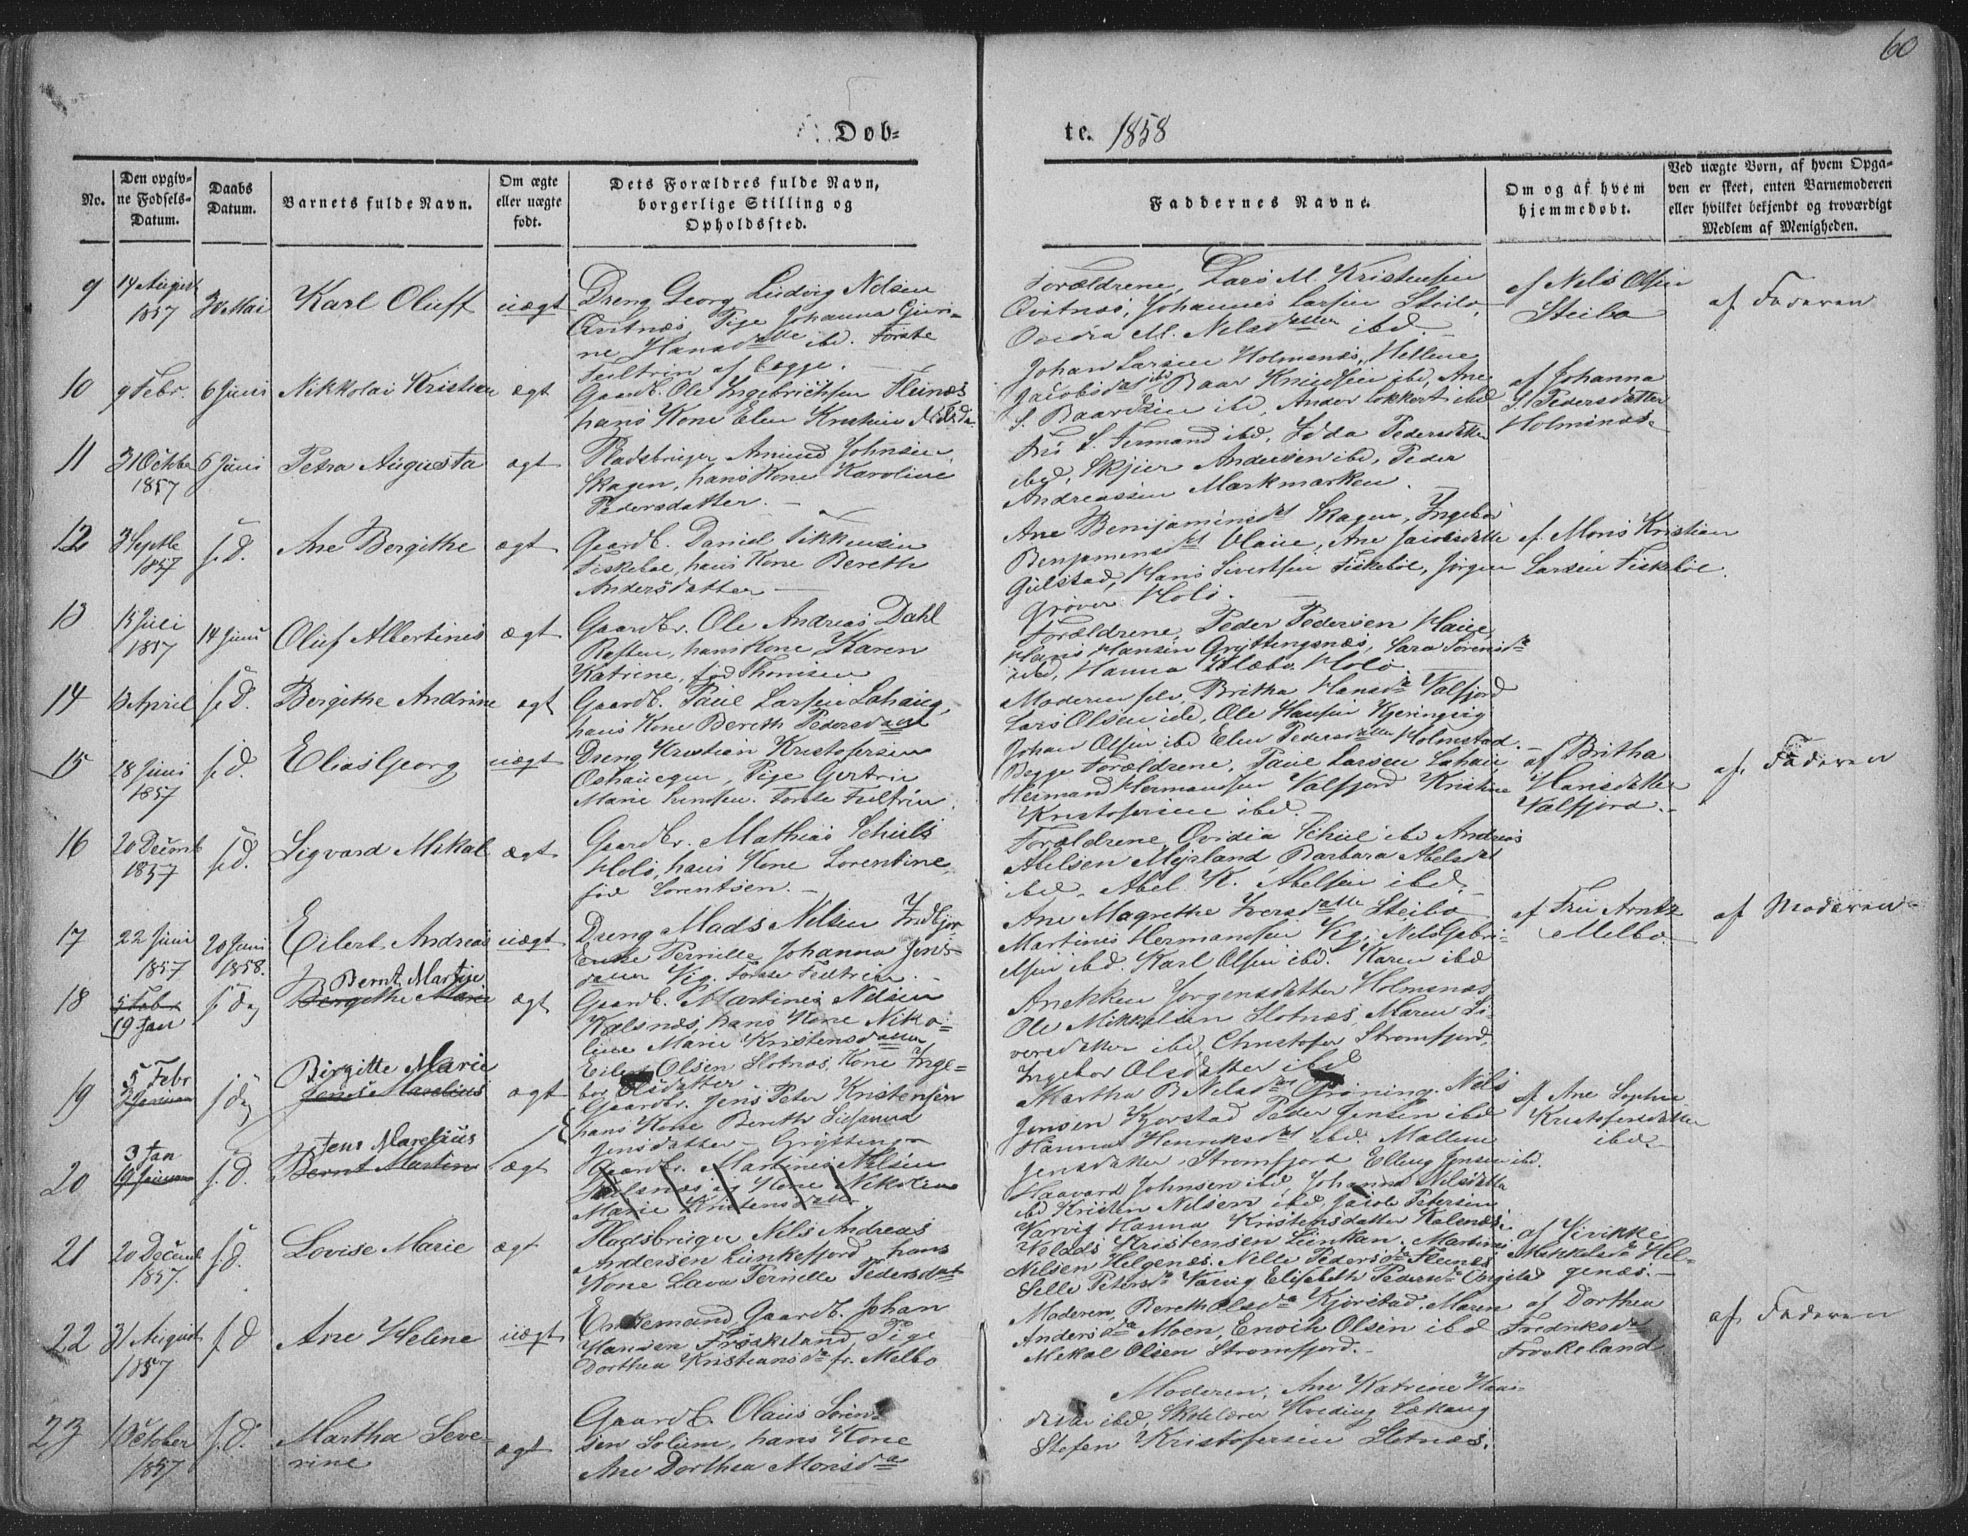 60
Døb-
te. 1858
No.
Den opgiv-
ne Fødsels-
Datum.
Daabs
Datum.
Barnets fulde Navn.
Om ægte
eller uægte
født.
Dets Forældres fulde Navn,
borgerlige Stilling og
Opholdssted.
Faddernes Navne.
Om og af hvem
hjemmedøbt.
Ved uægte Børn, af hvem Opga-
ven er skeet, enten Barnemoderen
eller hvilket bekjendt og troværdigt
Medlem af Menigheden.
9
14 August
1857
Mai
Karl Oluff
uægt
Dreng Georg Ludvig Nelsen
Qvitnæs, Pige Johanna
ne Hansdatter ibd. Første
Feiltrin af begge.
Forældrene, Lars M. Kristensen
Qvitnæs, Johannes Larsen Steibo,
Ovidia M. Nelsdatter ibd.
af Nels Olsen
Steibo
af Faderen
10
9 Febr.
6 Juni
Nikkolai Kristian
ægt
Gaardb. Ole Ingebrichtsen Fleinæs
hans Kone Elen Kristine
Johan Larsen Holmsnæs, Hellene
Jacobsd ibd, Baar Knudsen ibd, Ane
S. Baardsen ibd, Ander Lokkert ibd
af Johanna
S. Pedersdatter
Holmsnæs.
11
31 Octbe
1857
6 Juni
Petra Augusta
ægt
Pladsbruger Amund Johnsen
Skagen, hans Kone Karoline
Pedersdatter.
S. Fermand ibd, Pedersdatter
ibd, Skjier Andersen ibd, Peder
Andreassen Markmarken.
12
3 Septbe
1857
s. D.
Ane Bergithe
ægt
Gaardb. Daniel
Fiskebøl, hans Kone Bereth
Andersdatter
Ane Benjaminsdt Skagen, Ingebor
Benjaminsdt ibd, Ane Jacobsdatte
Gulstad, Hans Sivertsen Fiskebøl, Jørgen
Grøver Holo.
af Mons Kristian
Larsen Fiskebøl.
13
15 Juli
1857
14 Juni
Oluf Albertinis
ægt
Gaardbr. Ole Andreas Dahl
Reften, hans Kone Karen
Katrine, fød Thomsen
Forældrene, Peder Pedersen
Hans Hansen Gryttingsnæs, Sara Sørensd
ibd, Hanna Klæbo, Holo
14
13 April
s. D.
Bergithe Andrine
ægt
Gaardb. Paul Larsen Lahaug,
hans Kone Bereth Pedersdatt
Moderen selv, Britha Hansd Valfjord
Lars Olsen ibd, Ole Hansen Kjeringvig
Johan Olsen ibd Elen Pedersdatter Holmstad.
15
28 Juni
1857
s. D.
Elias Georg
uægt
Dreng Kristian Kristofersen
Oshaugen, Pige Gertrin
Marie Første Feiltrin
Begge Forældrene, Paul Larsen Lahau
Hermand Hermandsen Valfjord Kristine
Kristofersen ibd.
af Britha
Hansdatter
Valfjord.
af Faderen
16
20 Decemb
1857
s. D.
Sigvard Mikal
ægt
Gaardbr. Mathias Schuls
Holo, hans Kone Lorentine,
fød Lorentsen.
Forældrene, Ovidia Schul ibd Andreas
Abelsen Myrland, Barbara Abelsdat
ibd, Abel K. Abelsen ibd.
17
22 Juni
1857
20 Juni
1858.
Eilert Andreas
uægt
Dreng Mads Nelsen Indbjor
Enke Pernille Johanna Jens
datter Vig. Første Feiltrin.
Ane Magrethe Iversdatte Steibo
Martinus Hermandsen Vig, Nels Gabri-
elsen ibd. Karl Olsen ibd. Karen ibd
af Fru Arntz
Melbo
af Moderen
18
5 Febr
19 Jan
s dag
Bernt Martin
Bergithe Marie
ægt
Gaardb. Martinus Nelsen
Kalsnæs, hans Kone Niko-
line Marie Kristensdatter
Anekken Jørgensdatter Holmsnæs
Ole Mikkelsen Slotnæs, Maren Si-
versdatter ibd, Christofer Strømfjord,
Ingebor Olsdatter ibd
19
5 Febr
3 Januar
s dag
Birgitte Marie
Jens Marelius
ægt
Eilert Olsen Slotnæs, Kone Inge-
bor Olsdatter
Gaardbr. Jens Peter Kristensen
hans Kone Bereth Susanna
Jensdatter Grytting
Martha B Nelsd Grøning. Nels
Jensen Kjorstad Peder Jensen ibd
Hanna Henriksdt ibd. Mallene
Jensdatter, Strømfjord Elling Jensen ibd.
af Ane Sophie
Kristofersdatter
ibd.
20
3 Jan
19 Januar
s. D.
Jens Marelius
Bernt Martin
ægt
Gaardbr. Martinus Nelsen
Kalsnæs og Kone Nikoline
Marie Kristensdatter
Haavard Johnsen ibd, Johanna Nelsdatte
ibd Kristen Nelsen ibd, Jacob Petersen
Varvig Hanna Kristensdatter Kalsnæs
21
20 Decemb
1857.
s. D.
Lovise Marie
ægt
Pladsbruger Nils Andreas
Andersen Lunkefjord, hans
Kone Lava Pernelle Pedersdat
Kristensen Martinus
Nelsen Helgenes, Nelle Pedersd Fleines
Selle Petersd Varvig Elisabeth Pedersd
af Vivikke
Mikkelsd Hel-
genæs.
22
31 August
1857
s. D
Ane Helene
uægt
Enkemand, Gaardb. Johan
Hansen Frøskeland, Pige
Dorthea Kristiansd fr. Melbo
Moderen, Bereth Olsd Kjørstad. Maren
Andersd Moen, Enoch Olsen ibd
Mekal Olsen Strømfjord.
af Dorthea
Fredriksd
Forskeland
af Faderen
23
1 October
1857
s. D.
Martha Seve-
rine
ægt
Gaardb. Olaus Sören-
sen Solum, hans Kone
Ane Dorthea Monsd
Moderen, Ane Katrine
ibd, Skolelærer Hveding
Stefen Kristofersen Slotnæs.